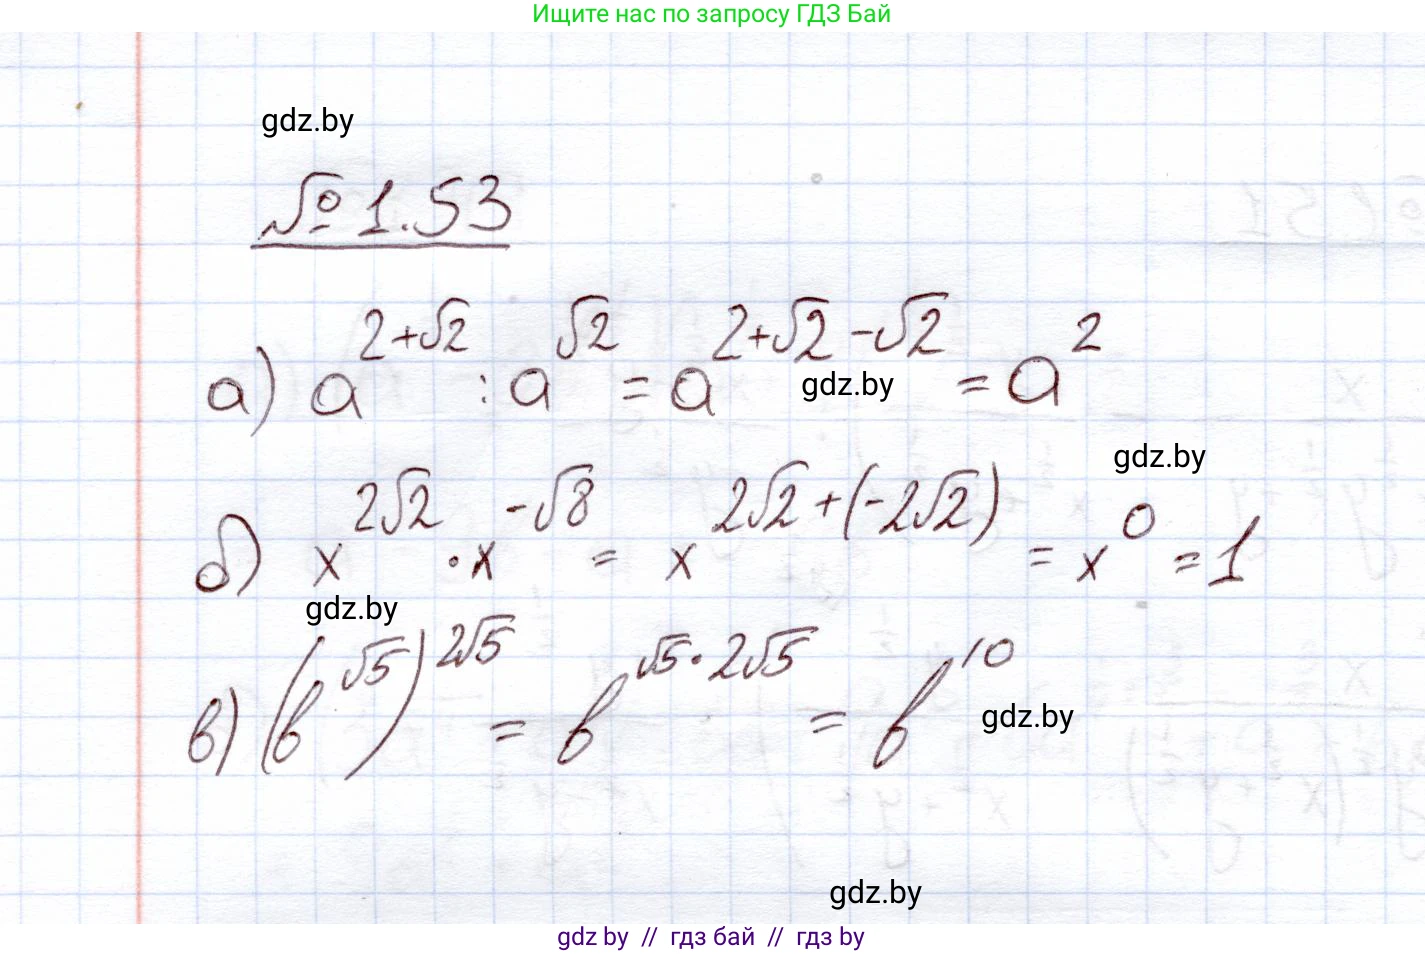 Ищите нас по запросу ГДЗ Бай
gdz.by
№ 1.53
а) a^{2+√2} : a^{√2} = a^{2+√2-√2} = a^2
gdz.by
gdz.by
б) x^{2√2} · x^{-√8} = x^{2√2+(-2√2)} = x^0 = 1
gdz.by
в) (b^{√5})^{2√5} = b^{√5·2√5} = b^{10}
gdz.by
gdz.by
gdz by // гдз бай // гдз by